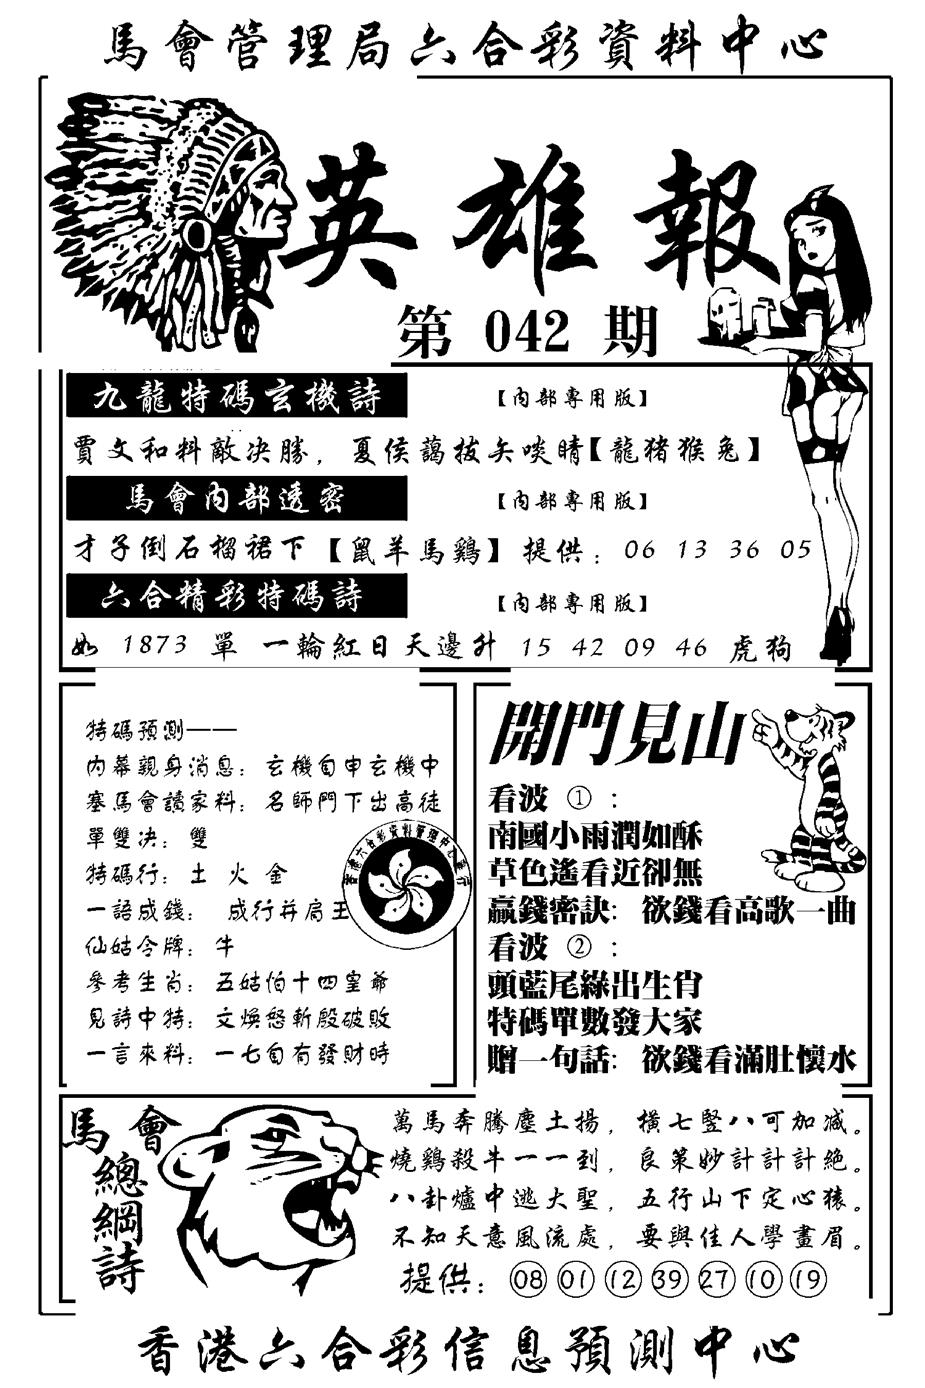 馬會管理局六合彩資料中心
英雄報
第 042 期
九龍特碼玄機詩
【內部專用版】
賈文和料敵决勝，夏侯藹拔矢啖睛【龍猪猴兔】
馬會內部透密
【內部專用版】
才子倒石榴裙下【鼠羊馬鷄】提供：06 13 36 05
六合精彩特碼詩
【內部專用版】
如 1873 單 一輪紅日天邊升 15 42 09 46 虎狗
特碼預測——
內幕親身消息：玄機自申玄機中
塞馬會讀家料：名師門下出高徒
單雙决：雙
特碼行：土 火 金
一語成錢： 成行并肩王
仙姑令牌：牛
參考生肖：五姑怕十四皇爺
見詩中特：文煥怒斬殷破敗
一言來料：一七自有發財時
香港六合彩資料管理中心發行
開門見山
看波 ①：
南國小雨潤如酥
草色遙看近卻無
贏錢密訣：欲錢看高歌一曲
看波 ②：
頭藍尾綠出生肖
特碼單數發大家
贈一句話：欲錢看滿肚懷水
馬會
總綱詩
萬馬奔騰塵土揚，橫七竪八可加减。
燒鷄殺牛一一到，良策妙計計計絕。
八卦爐中逃大聖，五行山下定心猿。
不知天意風流處，要與佳人學畫眉。
提供：08 01 12 39 27 10 19
香港六合彩信息預測中心